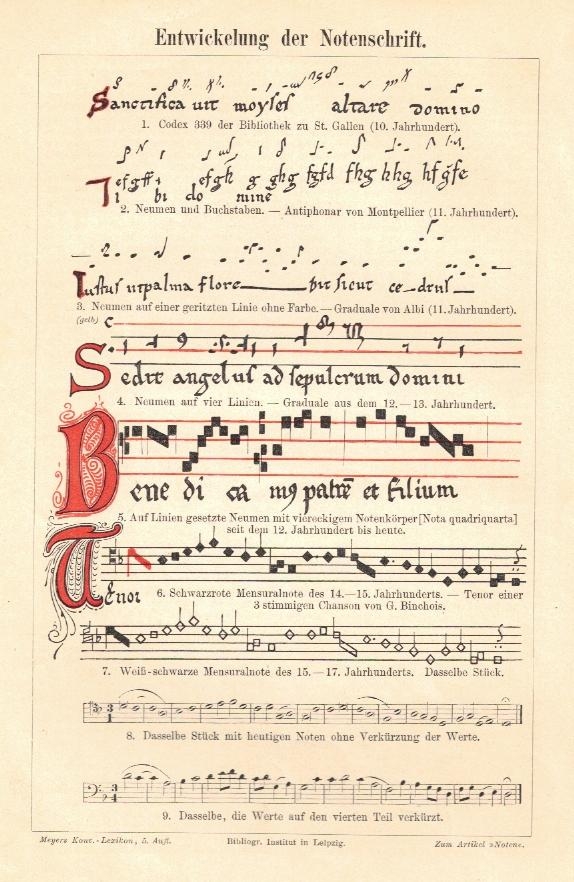 Entwickelung der Notenschrift.
Sanctifica vit moyses altare domino
1. Codex 339 der Bibliothek zu St. Gallen (10. Jahrhundert).
Ti bi do mine
2. Neumen und Buchstaben. — Antiphonar von Montpellier (11. Jahrhundert).
Iustus ut palma flore bit sicut ce drus
3. Neumen auf einer geritzten Linie ohne Farbe. — Graduale von Albi (11. Jahrhundert).
(gelb) C
Sedit angelus ad sepulcrum domini
4. Neumen auf vier Linien. — Graduale aus dem 12.—13. Jahrhundert.
Bene di ca patrē et filium
5. Auf Linien gesetzte Neumen mit viereckigem Notenkörper [Nota quadriquarta]
seit dem 12. Jahrhundert bis heute.
Tenor
6. Schwarzrote Mensuralnote des 14.—15. Jahrhunderts. — Tenor einer
3 stimmigen Chanson von G. Binchois.
7. Weiß-schwarze Mensuralnote des 15.—17. Jahrhunderts. Dasselbe Stück.
8. Dasselbe Stück mit heutigen Noten ohne Verkürzung der Werte.
9. Dasselbe, die Werte auf den vierten Teil verkürzt.
Meyers Konv.-Lexikon, 5. Aufl.
Bibliogr. Institut in Leipzig.
Zum Artikel »Noten«.